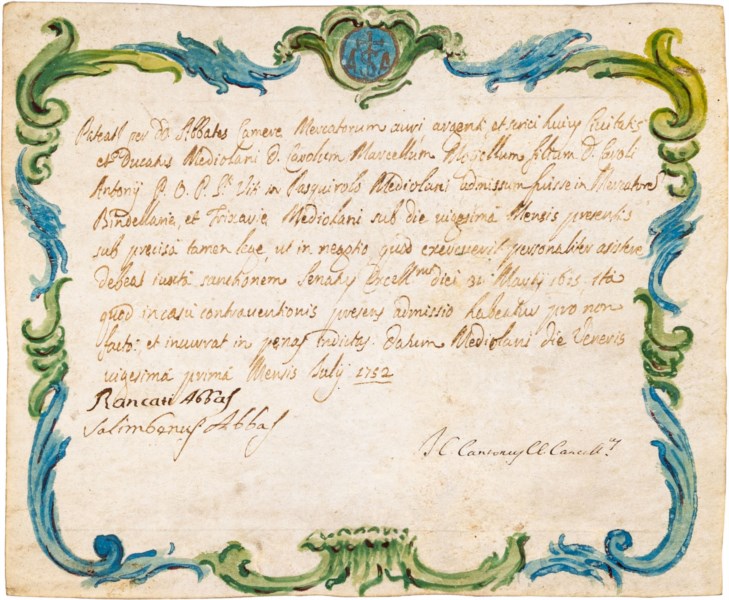 Pateat per DD Abbates Camere Mercatorum auri argenti et serici huius Civitatis
et Ducatus Mediolani D. Carolum Marcellum filium D. Caroli
Antonij P. O. P. S. Viti in Pasquirolo Mediolani admissum fuisse in Mercatorem
Bindellarie, et Frixarie Mediolani sub die vigesima Mensis presentis
sub precisa tamen lege, ut in negotio quod exercuerit personaliter assistere
debeat iuxta sanctionem Senatus Excell.mi diei 31 Martij 1625 Ita
quod in casu contraventionis presens admissio habeatur pro non
facta; et incurrat in penas Indictas. Datum Mediolani die Veneris
vigesima prima Mensis Julij 1752
Rancati Abbas
Salimbenus Abbas
J C. Cansonus C. Cancell.us